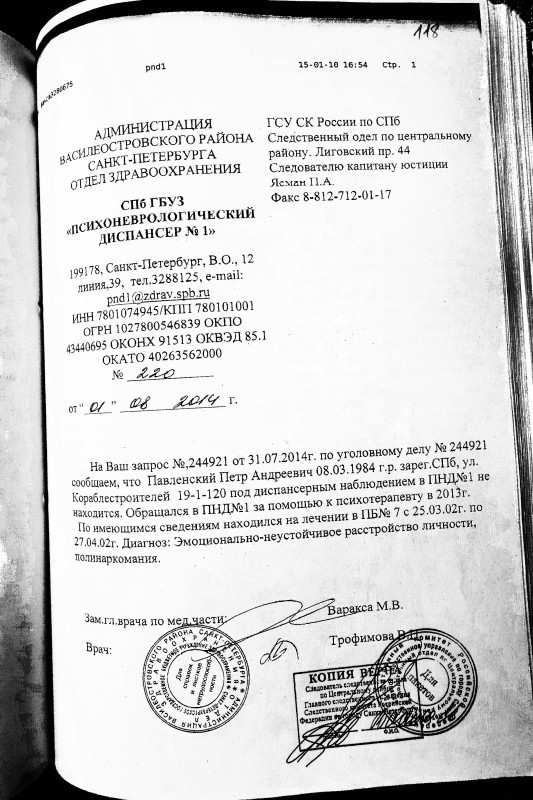 118
pnd1 15-01-10 16:54 Стр. 1
АДМИНИСТРАЦИЯ
ВАСИЛЕОСТРОВСКОГО РАЙОНА
САНКТ-ПЕТЕРБУРГА
ОТДЕЛ ЗДРАВООХРАНЕНИЯ
СПб ГБУЗ
«ПСИХОНЕВРОЛОГИЧЕСКИЙ
ДИСПАНСЕР № 1»
199178, Санкт-Петербург, В.О., 12
линия,39, тел.3288125, e-mail:
pnd1@zdrav.spb.ru
ИНН 7801074945/КПП 780101001
ОГРН 1027800546839 ОКПО
43440695 ОКОНХ 91513 ОКВЭД 85.1
ОКАТО 40263562000
№ 220
от “ 01 ” 08 2014 г.
ГСУ СК России по СПб
Следственный одел по центральному
району. Лиговский пр. 44
Следователю капитану юстиции
Ясман П.А.
Факс 8-812-712-01-17
На Ваш запрос №,244921 от 31.07.2014г. по уголовному делу № 244921
сообщаем, что Павленский Петр Андреевич 08.03.1984 г.р. зарег.СПб, ул.
Кораблестроителей 19-1-120 под диспансерным наблюдением в ПНД№1 не
находится. Обращался в ПНД№1 за помощью к психотерапевту в 2013г.
По имеющимся сведениям находился на лечении в ПБ№ 7 с 25.03.02г. по
27.04.02г. Диагноз: Эмоционально-неустойчивое расстройство личности,
полинаркомания.
Зам.гл.врача по мед.части: Варакса М.В.
Врач: Трофимова В.
Для справок и листков нетрудоспособности
КОПИЯ ВЕРНА
Следователь следственного отдела
по Центральному району
Главного следственного управления
Следственного комитета Российской
Федерации по Санкт-Петербургу
Ф.И.О.
Для пакетов